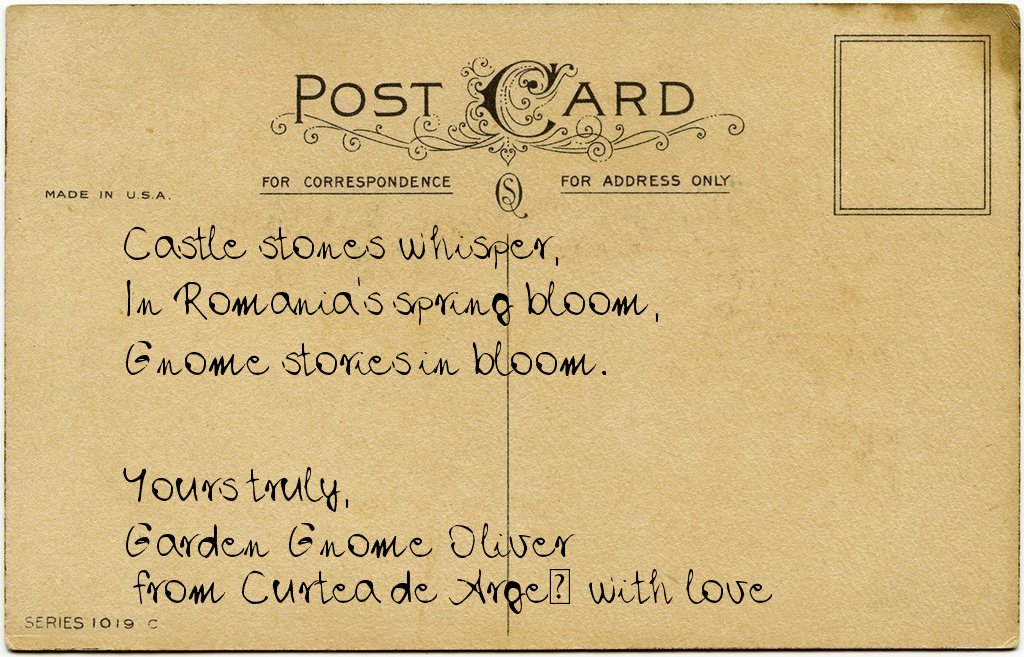 POST CARD
FOR CORRESPONDENCE
FOR ADDRESS ONLY
MADE IN U.S.A.
Castle stones whisper,
In Romania's spring bloom,
Gnome stories in bloom.
Yours truly,
Garden Gnome Oliver
from Curtea de Arge□ with love
SERIES 1019 C